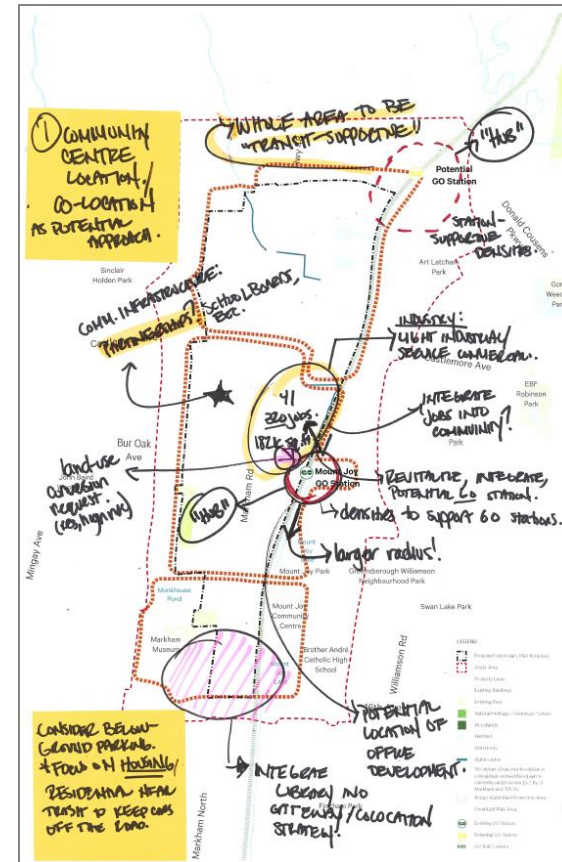 ① COMMUNITY
CENTRE
LOCATION/
CO-LOCATION
AS POTENTIAL
APPROACH.
WHOLE AREA TO BE
"TRANSIT-SUPPORTIVE"
"HUB"
Potential
GO Station
STATION-
SUPPORTIVE
DENSITIES.
Donald Cousens
Pkwy
Art Latcham
Park
Sinclair
Holden Park
COMM. INFRASTRUCTURE:
PARTNERSHIPS/ SCHOOL BOARDS,
ETC.
INDUSTRY:
LIGHT INDUSTRIAL/
SERVICE COMMERCIAL.
Castlemore Ave
EBF
Robinson
Park
INTEGRATE
JOBS INTO
COMMUNITY?
Park
41
320 jobs.
182K
Bur Oak
Ave
land-use
conversion
request
Markham Rd
Mount Joy
GO Station
REVITALIZE, INTEGRATE,
POTENTIAL GO STATION.
densities to support GO stations.
"HUB"
larger radius!
Mingay Ave
Mount Joy Park
Greensborough Williamson
Neighbourhood Park
Monkhouse
Pond
Mount Joy
Community
Centre
Swan Lake Park
Markham
Museum
Brother André
Catholic High
School
Williamson Rd
POTENTIAL
LOCATION OF
OFFICE
DEVELOPMENT.
CONSIDER BELOW-
GROUND PARKING.
* FOCUS ON HOUSING/
RESIDENTIAL NEAR
TRANSIT TO KEEP CARS
OFF THE ROAD.
INTEGRATE
LIBRARY INTO
GATEWAY/COLOCATION
STRATEGY.
Park
Markham North
LEGEND
Study Area
Existing Buildings
Existing Park
Woodlands
Wetland
Waterbody
Existing GO Station
Potential GO Station
GO Rail Corridor